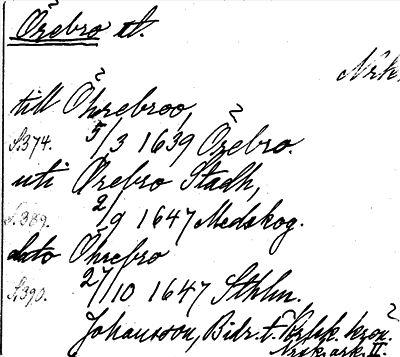 Örebro st.
Nrk.
till Öhrebroo,
S.374. 5/3 1639 Örebro.
uti Örebro Stadh,
S.389. 2/9 1647 Medskog.
dato Öhrebro
S.390. 27/10 1647 Sthlm.
Johansson, Bidr. t.
ark. II.